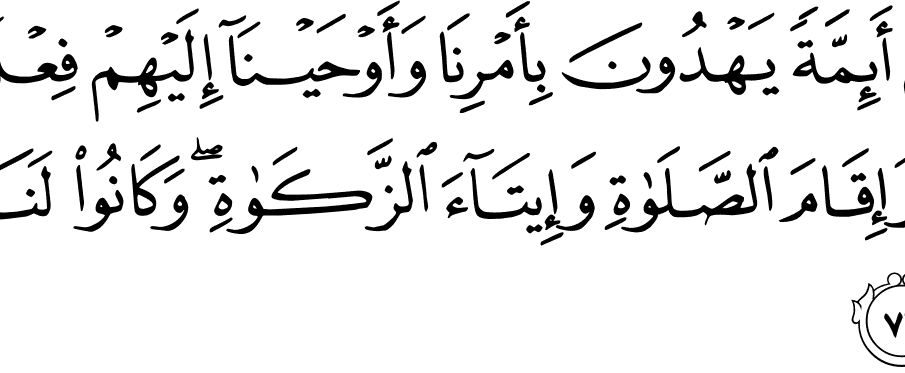 أَئِمَّةً يَهْدُونَ بِأَمْرِنَا وَأَوْحَيْنَآ إِلَيْهِمْ
وَإِقَامَ ٱلصَّلَوٰةِ وَإِيتَآءَ ٱلزَّكَوٰةِ ۖ وَكَانُوا۟